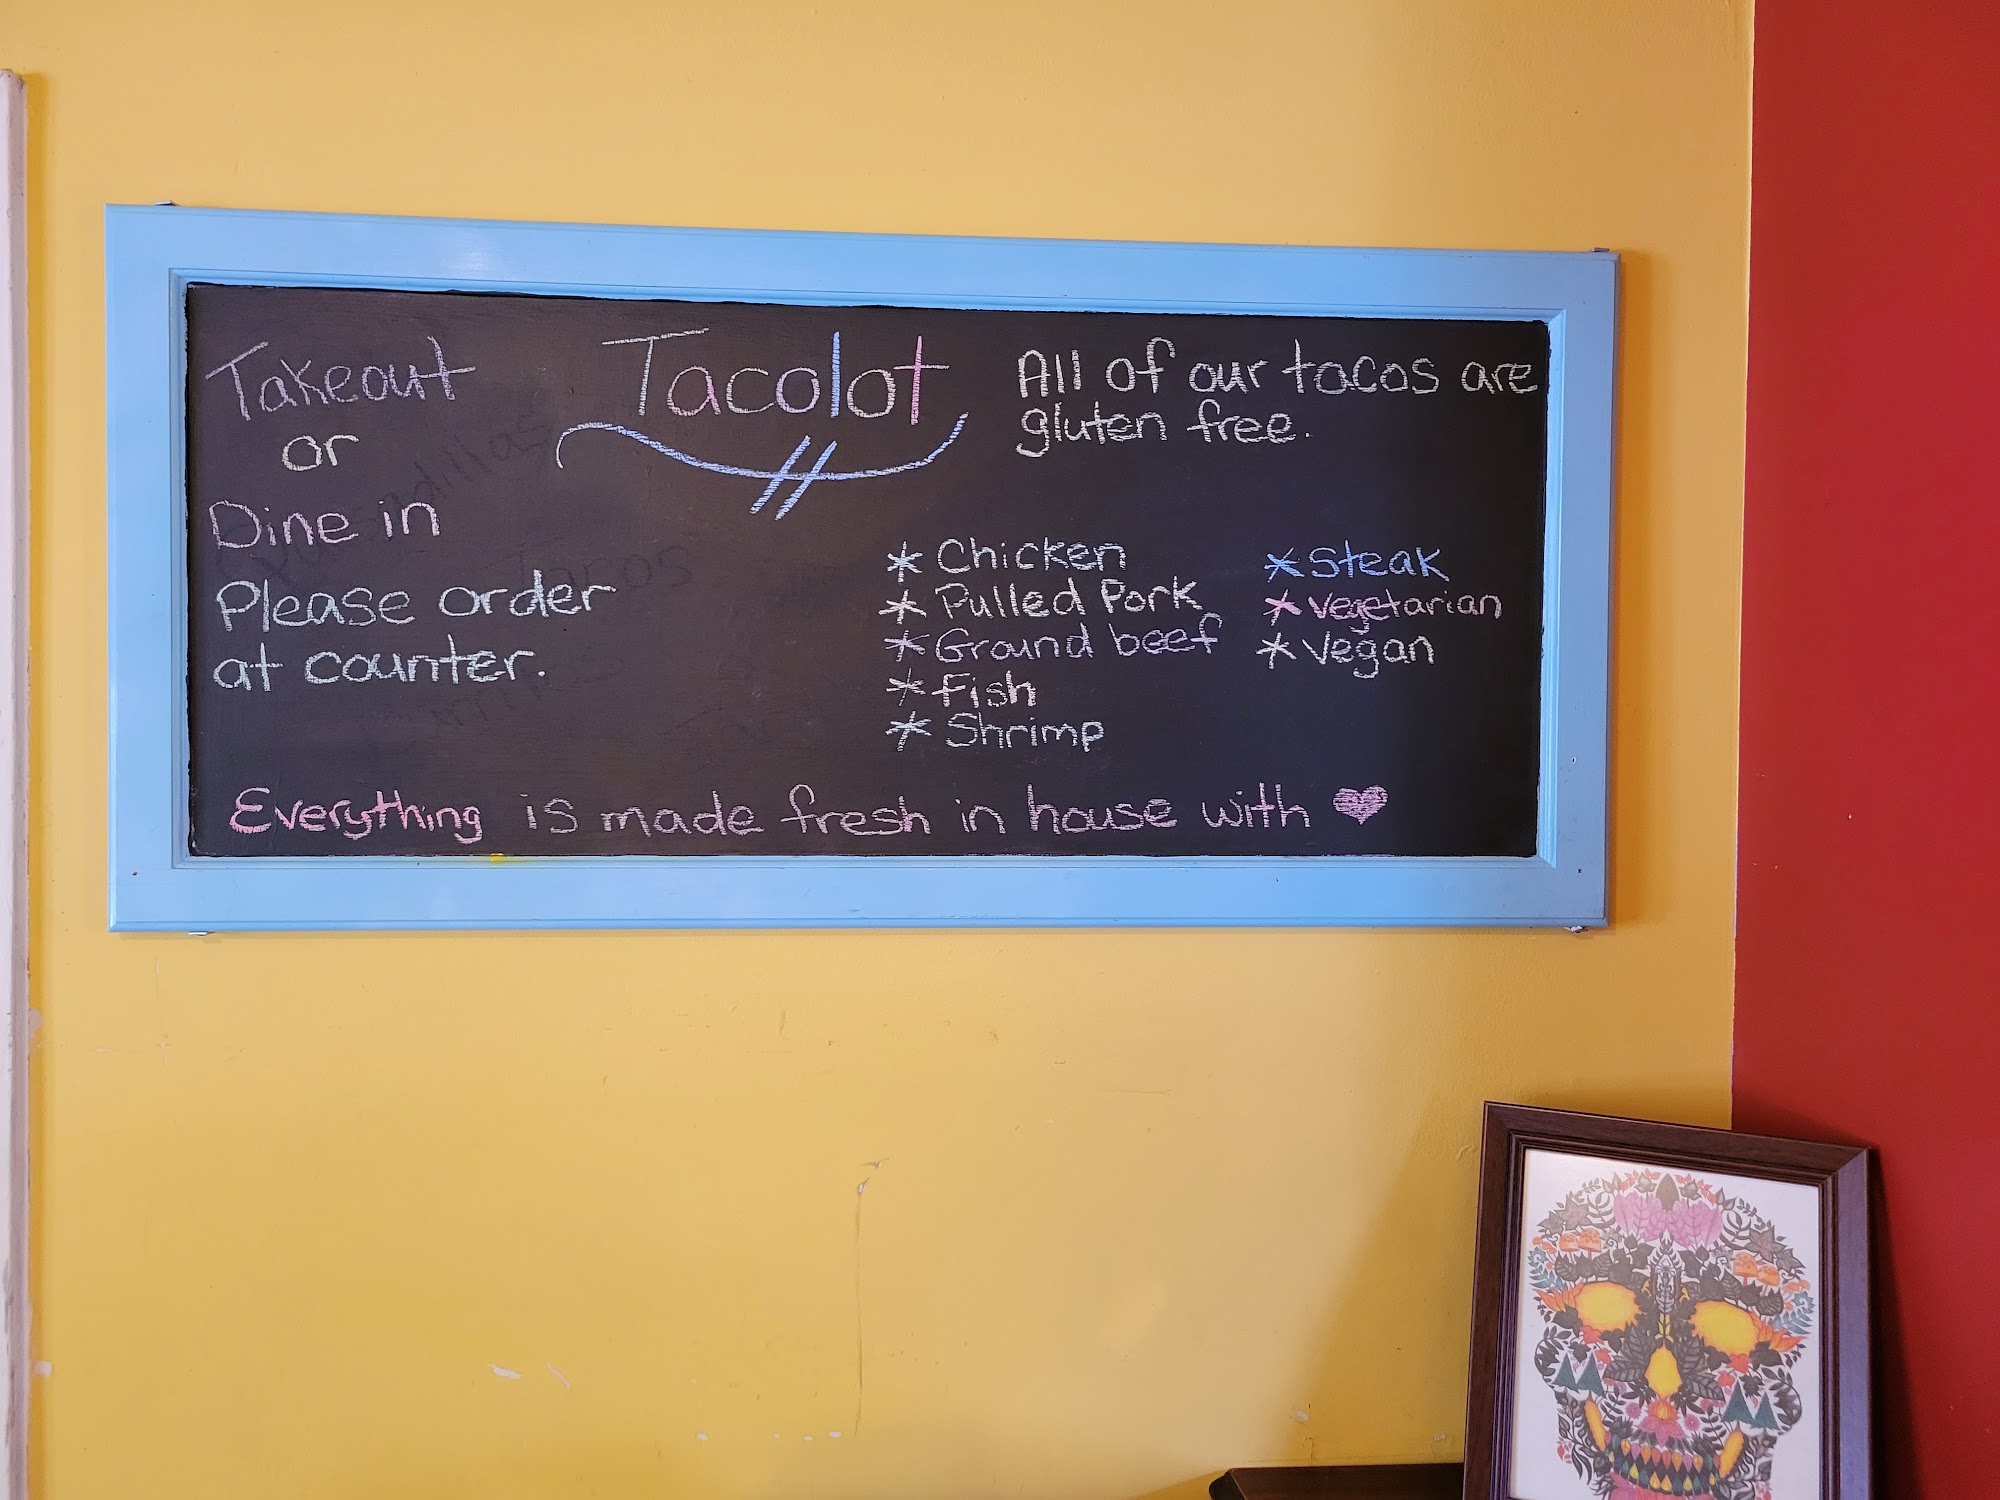 Takeout
or
Dine in
Please order
at counter.
Tacolot
All of our tacos are
gluten free.
* Chicken
* Pulled Pork
* Ground beef
* Fish
* Shrimp
* Steak
* Vegetarian
* Vegan
Everything is made fresh in house with ♥